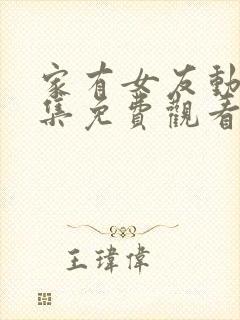 家有女友動
集免費觀看
王瑋偉